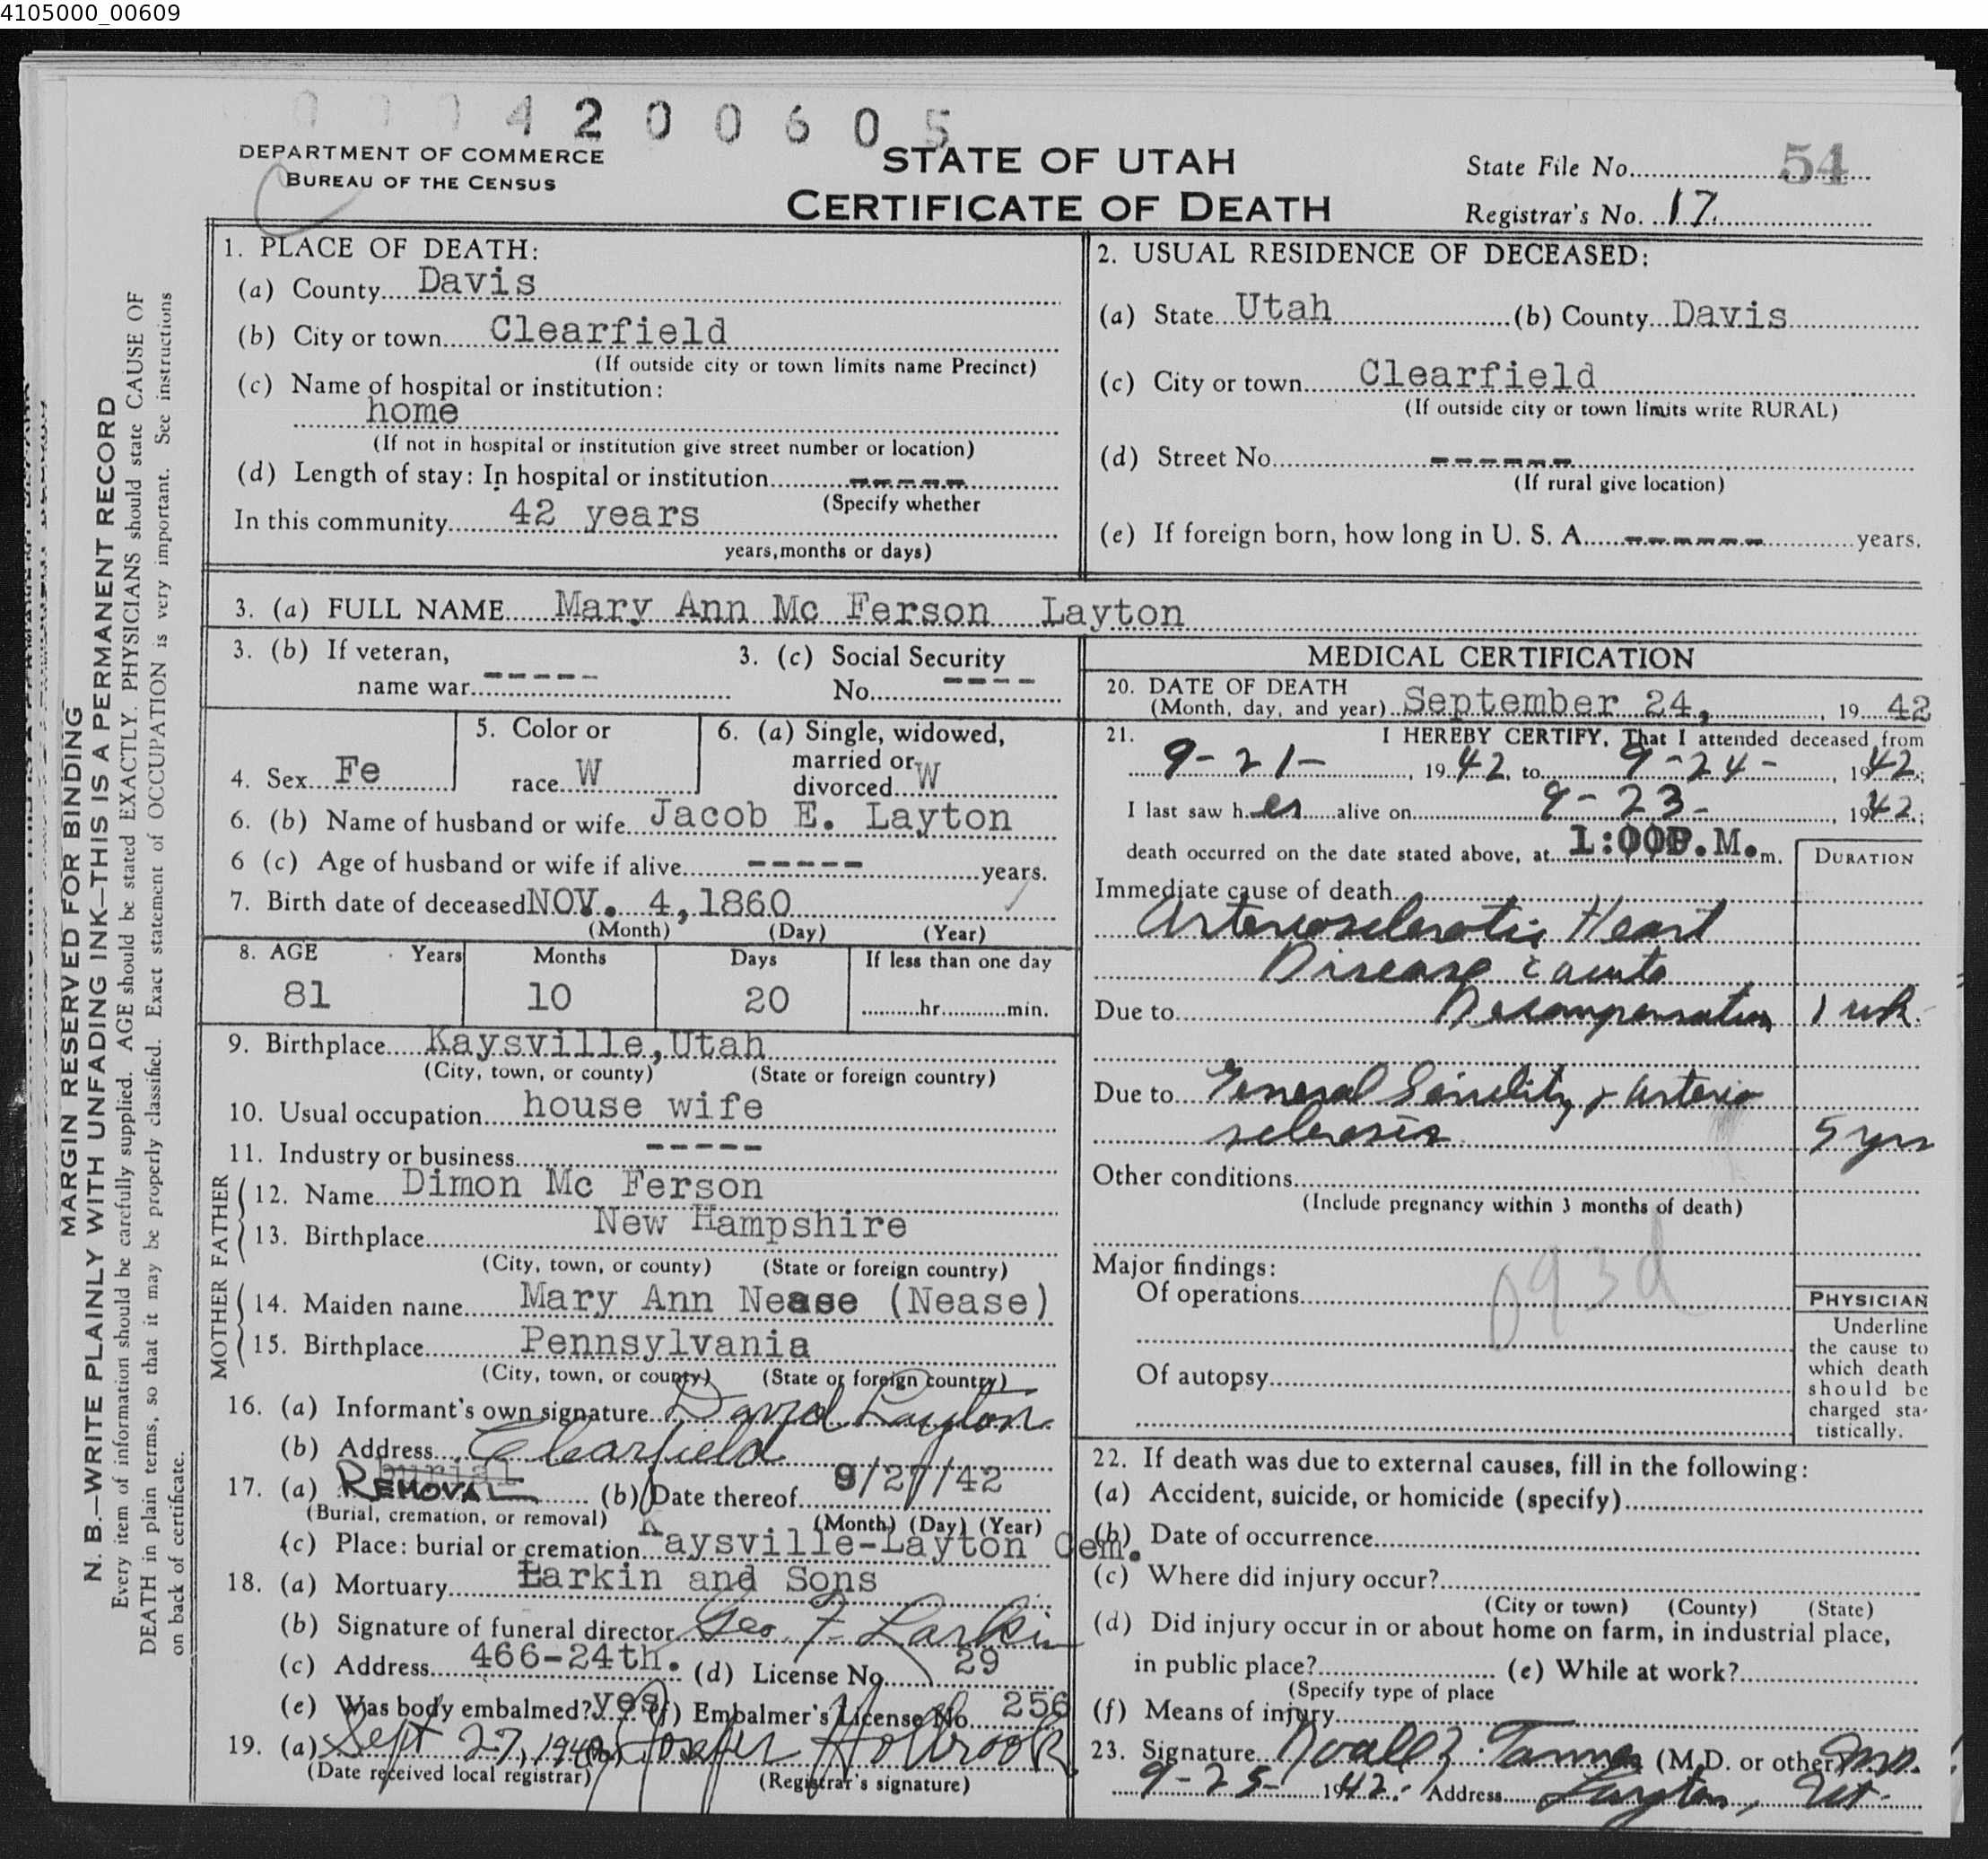 4105000_00609
0 0 0 4 2 0 0 6 0 5
DEPARTMENT OF COMMERCE
BUREAU OF THE CENSUS
STATE OF UTAH
CERTIFICATE OF DEATH
State File No. 54
Registrar's No. 17
MARGIN RESERVED FOR BINDING
N. B.—WRITE PLAINLY WITH UNFADING INK—THIS IS A PERMANENT RECORD
Every item of information should be carefully supplied. AGE should be stated EXACTLY. PHYSICIANS should state CAUSE OF
DEATH in plain terms, so that it may be properly classified. Exact statement of OCCUPATION is very important. See instructions
on back of certificate.
1. PLACE OF DEATH:
(a) County Davis
(b) City or town Clearfield
(If outside city or town limits name Precinct)
(c) Name of hospital or institution:
home
(If not in hospital or institution give street number or location)
(d) Length of stay: In hospital or institution -----
(Specify whether
In this community 42 years
years, months or days)
2. USUAL RESIDENCE OF DECEASED:
(a) State Utah (b) County Davis
(c) City or town Clearfield
(If outside city or town limits write RURAL)
(d) Street No. ------
(If rural give location)
(e) If foreign born, how long in U. S. A. ------ years.
3. (a) FULL NAME Mary Ann Mc Ferson Layton
3. (b) If veteran,
name war -----
3. (c) Social Security
No. ----
4. Sex Fe
5. Color or
race W
6. (a) Single, widowed,
married or
divorced W
6. (b) Name of husband or wife Jacob E. Layton
6 (c) Age of husband or wife if alive ----- years.
7. Birth date of deceased NOV. 4, 1860
(Month) (Day) (Year)
8. AGE Years Months Days If less than one day
81 10 20 hr. min.
9. Birthplace Kaysville, Utah
(City, town, or county) (State or foreign country)
10. Usual occupation house wife
11. Industry or business -----
FATHER
12. Name Dimon Mc Ferson
13. Birthplace New Hampshire
(City, town, or county) (State or foreign country)
MOTHER
14. Maiden name Mary Ann Nease (Nease)
15. Birthplace Pennsylvania
(City, town, or county) (State or foreign country)
16. (a) Informant's own signature David Layton
(b) Address Clearfield
17. (a) burial REMOVAL (b) Date thereof 9/27/42
(Burial, cremation, or removal) (Month) (Day) (Year)
(c) Place: burial or cremation Kaysville-Layton Cem.
18. (a) Mortuary Larkin and Sons
(b) Signature of funeral director Geo. F Larkin
(c) Address 466-24th. (d) License No. 29
(e) Was body embalmed? yes (f) Embalmer's License No. 256
19. (a) Sept 27, 1942 (b) Holbrook
(Date received local registrar) (Registrar's signature)
MEDICAL CERTIFICATION
20. DATE OF DEATH
(Month, day, and year) September 24, , 19 42
21. I HEREBY CERTIFY, That I attended deceased from
9-21- , 19 42, to 9-24- , 19 42;
I last saw h er alive on 9-23- , 19 42;
death occurred on the date stated above, at 1:00P.M. m.
DURATION
Immediate cause of death
Arteriosclerotic Heart
Disease c acute
Due to Decompensation 1 wk.
Due to General Senility & arterio
sclerosis 5 yrs
Other conditions
(Include pregnancy within 3 months of death)
093d
Major findings:
Of operations
Of autopsy
PHYSICIAN
Underline
the cause to
which death
should be
charged sta-
tistically.
22. If death was due to external causes, fill in the following:
(a) Accident, suicide, or homicide (specify)
(b) Date of occurrence
(c) Where did injury occur?
(City or town) (County) (State)
(d) Did injury occur in or about home on farm, in industrial place,
in public place? (e) While at work?
(Specify type of place
(f) Means of injury
23. Signature Noall Z. Tanner (M.D. or other) M.D.
9-25- 1942. Address Layton, Ut.